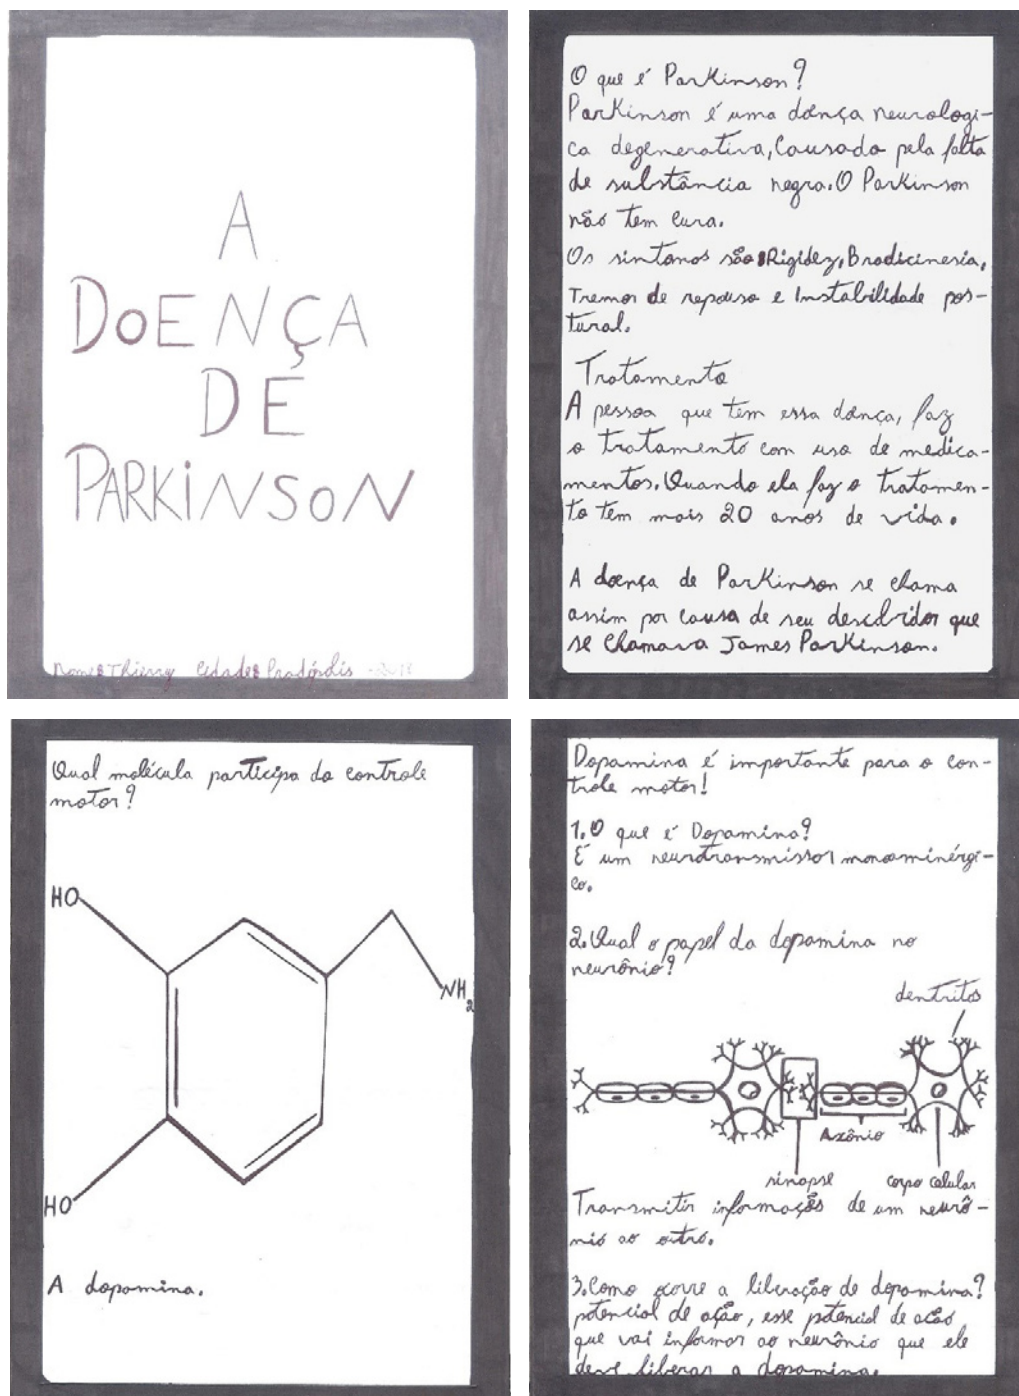 A
DOENÇA
DE
PARKiNSON
Nome: Thierry Cidade: Pradópolis - 2018
O que é Parkinson?
Parkinson é uma doença neurologi-
ca degenerativa, Causada pela falta
de substância negra. O Parkinson
não tem cura.
Os sintomos são: Rigidez, Bradicinesia,
Tremor de repouso e Instabilidade pos-
tural.
Tratamento
A pessoa que tem essa doença, faz
o tratamento com uso de medica-
mentos. Quando ela faz o tratamen-
to tem mais 20 anos de vida.
A doença de Parkinson se chama
assim por causa de seu descobridor que
se Chamava James Parkinson.
Qual molécula participa do controle
motor?
HO
NH2
HO
A dopamina.
Dopamina é importante para o con-
trole motor!
1. O que é Dopamina?
É um neurotransmissor monoaminérgi-
co.
2. Qual o papel da dopamina no
neurônio?
dentritos
Axônio
sinapse corpo celular
Transmitir informações de um neurô-
nio ao outro.
3. Como ocorre a liberação de dopamina?
potencial de ação, esse potencial de acão
que vai informar ao neurônio que ele
deve liberar a dopamina.